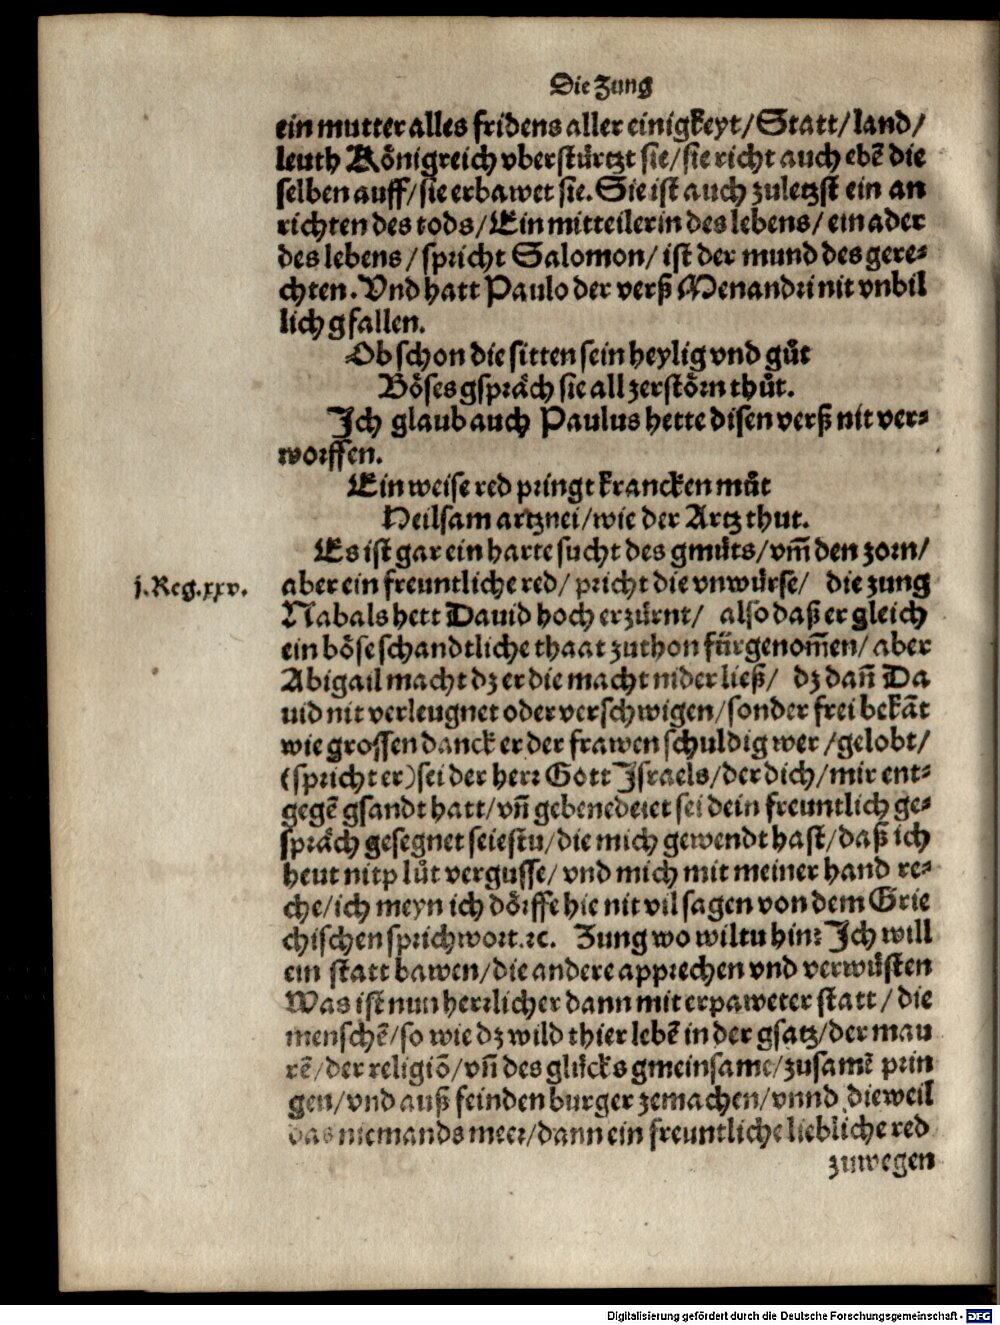 Die Zung
ein mutter alles fridens aller einigkeyt/ Statt/ land/
leuth Königreich vberstürtzt sie/ sie richt auch ebẽ die
selben auff/ sie erbawet sie. Sie ist auch zuletzst ein an
richten des tods/ Ein mitteilerin des lebens/ ein ader
des lebens/ spricht Salomon/ ist der mund des gere⸗
chten. Vnd hatt Paulo der verß Menandri nit vnbil
lich gfallen.
Ob schon die sitten sein heylig vnd gůt
Böses gspräch sie all zerstörn thůt.
Ich glaub auch Paulus hette disen verß nit ver⸗
worffen.
Ein weise red pringt krancken můt
Heilsam artznei/ wie der Artz thut.
Es ist gar ein harte sucht des gmüts/ vm̃ den zorn/
j. Reg. xxv.
aber ein freuntliche red/ pricht die vnwürse/ die zung
Nabals hett Dauid hoch erzürnt/ also daß er gleich
ein böse schandtliche thaat zuthon fürgenom̃en/ aber
Abigail macht dz er die macht nider ließ/ dz dañ Da
uid nit verleugnet oder verschwigen/ sonder frei bekãt
wie grossen danck er der frawen schuldig wer/ gelobt/
(spricht er) sei der herr Gott Israels/ der dich/ mir ent⸗
gegẽ gsandt hatt/ vñ gebenedeiet sei dein freuntlich ge⸗
spräch gesegnet seiestu/ die mich gewendt hast/ daß ich
heut nit plůt vergusse/ vnd mich mit meiner hand re⸗
che/ ich meyn ich dörffe hie nit vil sagen von dem Grie
chischen sprichwort. ꝛc. Zung wo wiltu hin? Ich will
ein statt bawen/ die andere apprechen vnd verwüsten
Was ist nun herrlicher dann mit erpaweter statt/ die
menschẽ/ so wie dz wild thier lebẽ in der gsatz/ der mau
rẽ/ der religiõ/ vñ des glücks gmeinsame/ zusamẽ prin
gen/ vnd auß feinden burger zemachen/ vnnd dieweil
das niemands meer/ dann ein freuntliche liebliche red
zuwegen
Digitalisierung gefördert durch die Deutsche Forschungsgemeinschaft - DFG